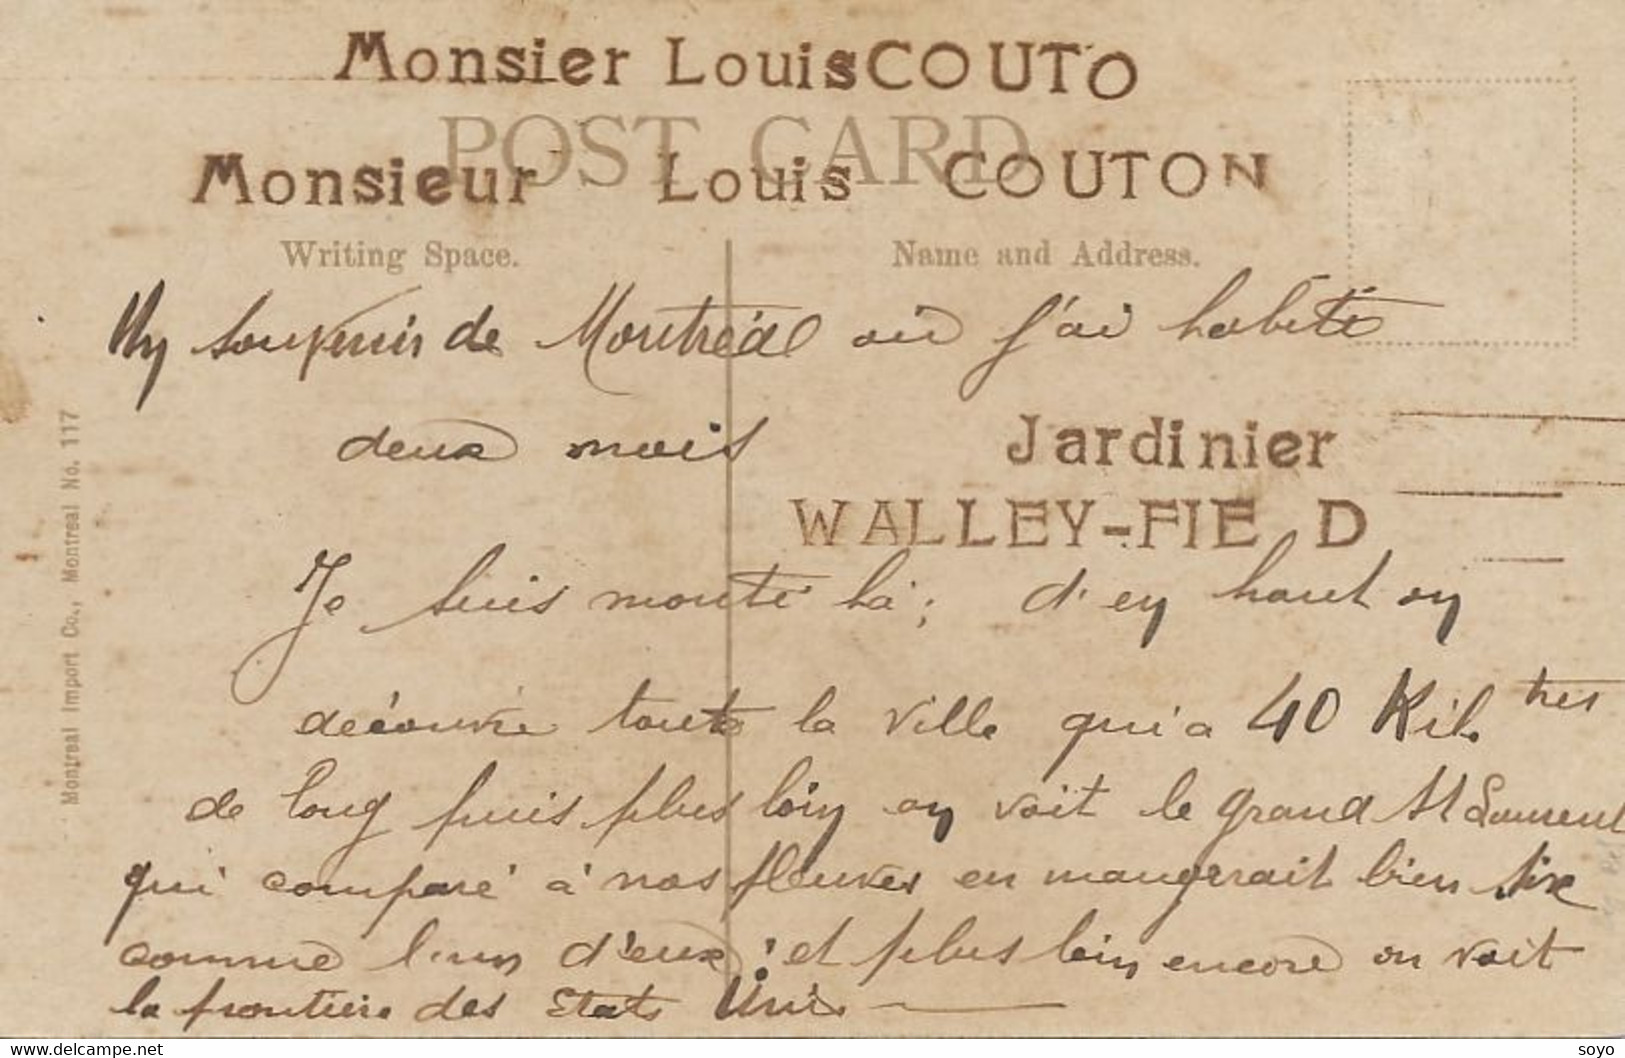 Monsier Louis COUTO
POST CARD
Monsieur Louis COUTON
Writing Space.
Name and Address.
Un souvenir de Montréal où j'ai habité
deux mois
Jardinier
WALLEY-FIE D
Je suis monté là ; d'en haut on
découvre toute la ville qui a 40 Kil. tres
de long puis plus loin on voit le grand St Laurent
qui comparé à nos fleuves en mangerait bien six
comme l'un d'eux ; et plus loin encore on voit
la frontière des Etats Unis
Montreal Import Co., Montreal No. 117
www.delcampe.net
soyo